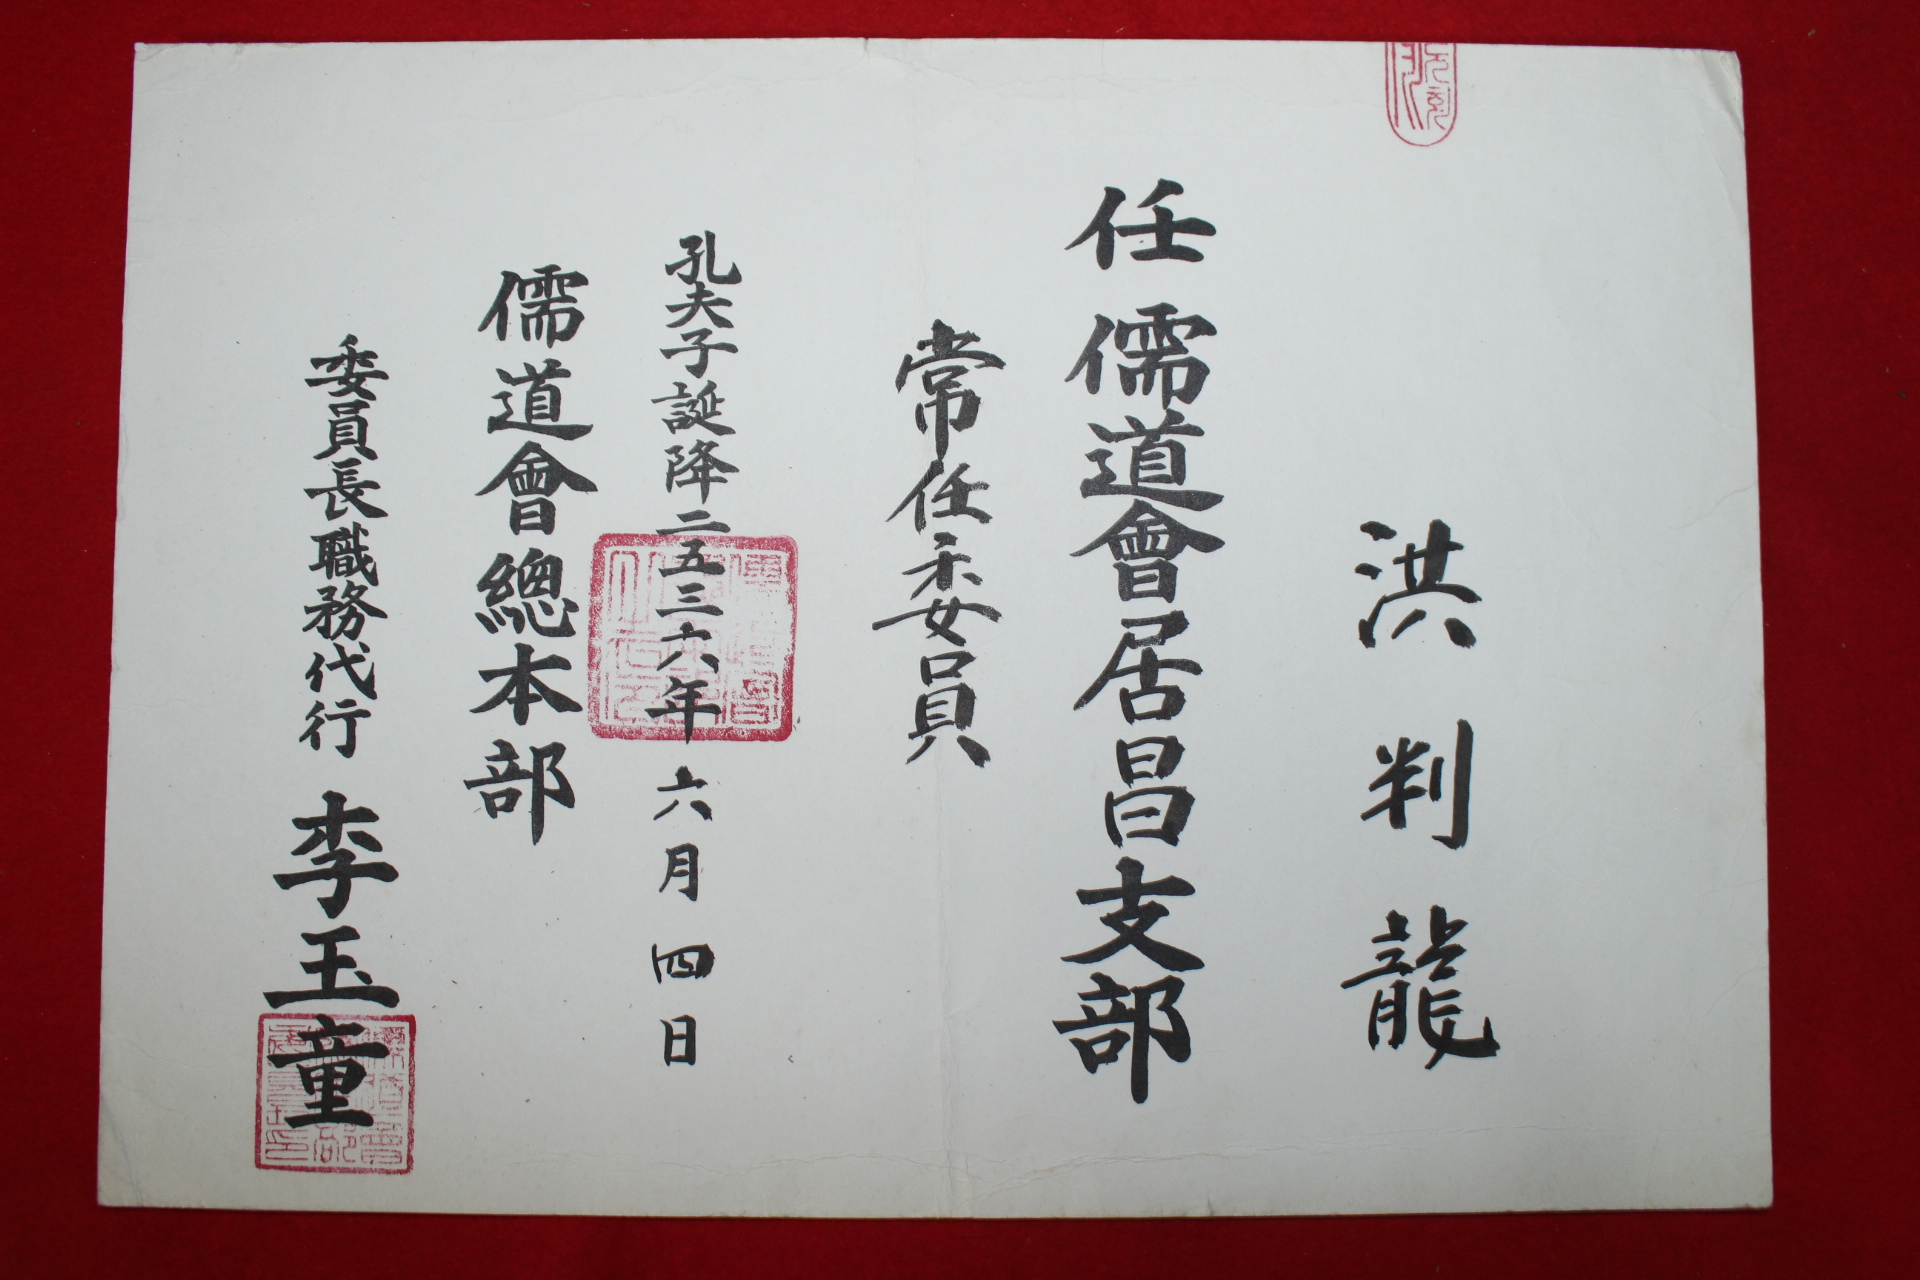 洪判龍
任儒道會居昌支部
常任委員
孔夫子誕降二五三六年六月四日
儒道會總本部
委員長職務代行 李玉童